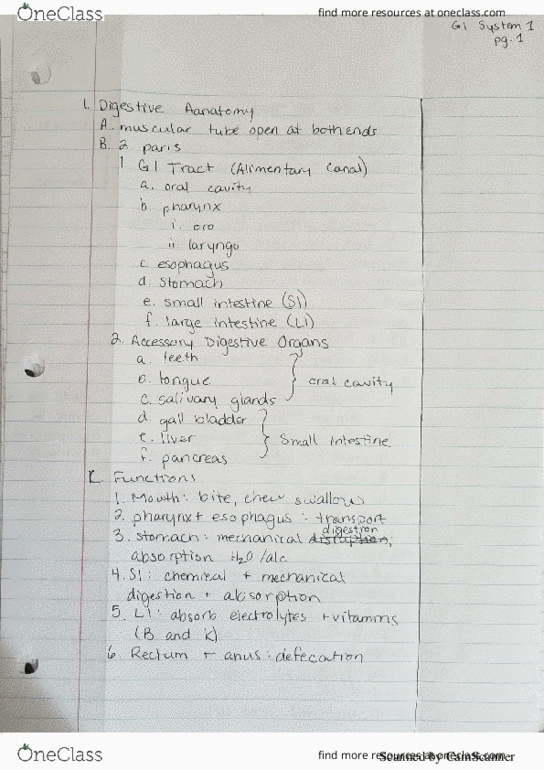 OneClass
find more resources at oneclass.com
GI System 1
pg. 1
1. Digestive Aanatomy
A. muscular tube open at both ends
B. 2 paris
1 GI Tract (Alimentary Canal)
a. oral cavity
b. pharynx
i. oro
ii. laryngo
c. esophagus
d. stomach
e. small intestine (SI)
f. large intestine (LI)
2. Accessory Digestive Organs
a. teeth
b. tongue
c. salivary glands
oral cavity
d. gall bladder
e. liver
f. pancreas
Small intestine
C. Functions
1. Mouth: bite, chew swallow
2. pharynx + esophagus : transport
digestion
3. stomach: mechanical disruption;
absorption H2O /alc
4. SI: chemical + mechanical
digestion + absorption
5. LI: absorb electrolytes + vitamins
(B and K)
6. Rectum + anus: defecation
OneClass
find more resources at oneclass.com
Scanned by CamScanner